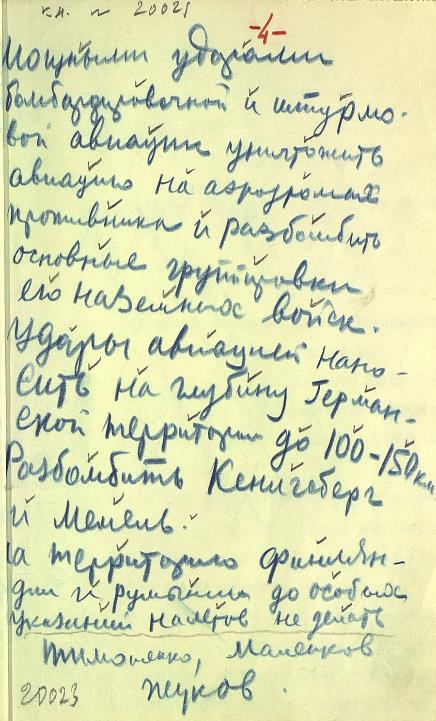 к.н. № 20021
-4-
Мощными ударами
бомбардировочной и штурмо-
вой авиации уничтожить
авиацию на аэродромах
противника и разбомбить
основные группировки
его наземных войск.
Удары авиацией нано-
сить на глубину Герман-
ской территории до 100-150 км
Разбомбить Кенигсберг
и Мемель.
на территорию Финлян-
дии и Румынии до особых
указаний налетов не делать
Тимошенко, Маленков
Жуков.
20023